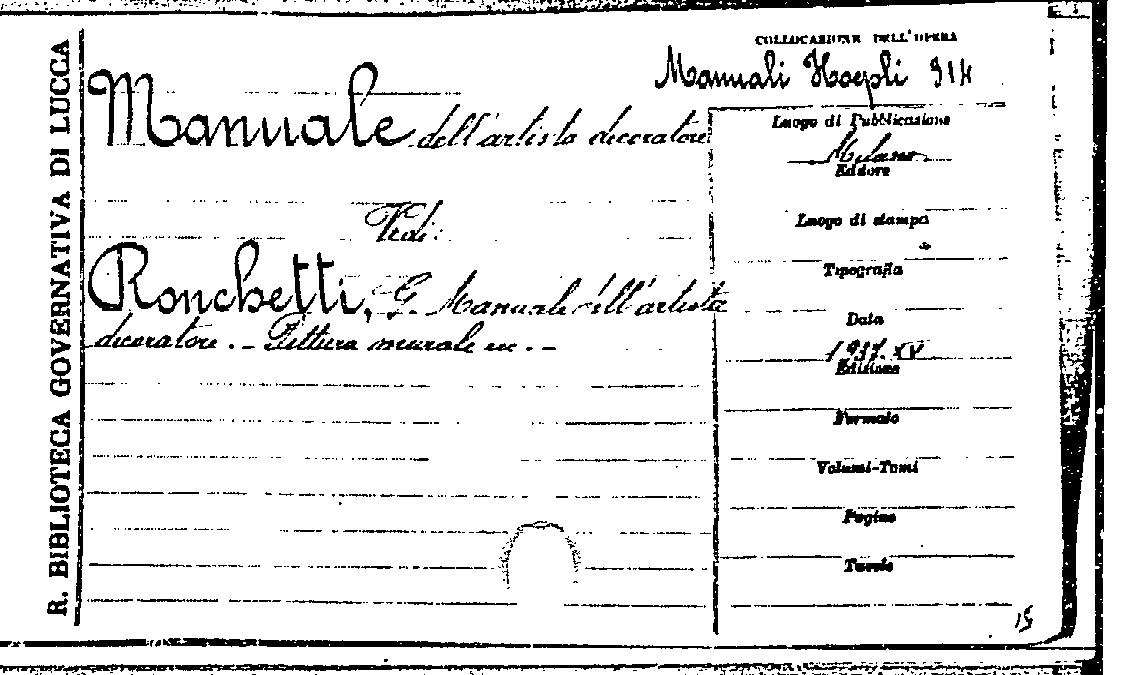 R. BIBLIOTECA GOVERNATIVA DI LUCCA
COLLOCAZIONE DELL'OPERA
Manuali Hoepli 914
Manuale dell'artista decoratore
Vedi:
Ronchetti, G. Manuale dell'artista
decoratore. - Pittura murale ec. -
Luogo di Pubblicazione
Milano
Editore
Luogo di stampa
Tipografia
Data
1937. XV
Edizione
Formato
Volumi-Tomi
Pagine
Tavole
15